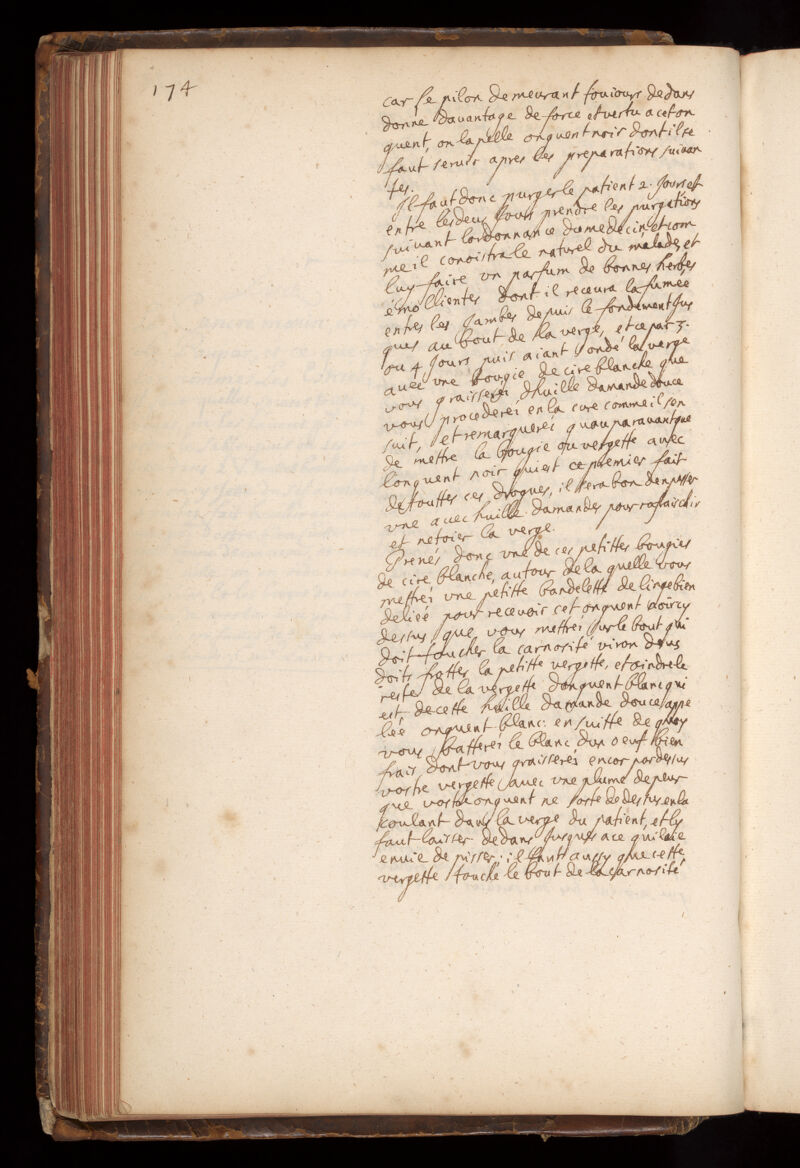 174
car le pilon demeurant tousiours dedans
donne davantage de force et vertu a cet on
quent, on lapelle onquent noir dont il se
faut servir apres les preparations suivan
tes.
Il faut donc purger le patient 2. Jours et
entre les deux Jours prendre les purgations
suivant lordonnance du medecin et com
me il conoistra le naturel du malade, et
luy faire un parfum de bonnes herbes
émollientes dont il recevra la fumée
entre les Jambes depuis le fondement Jus
ques au bout de la verge, et ce par 3.
ou 4 Jours puis aiant sondé la verge
avec une bougie de cire blanche que
vous graisserei dhuille damande douce
vous procederei en la cure comme il sen
suit, et remarquerés quauparavant que
de mettre la bougie ou vergette avec
lonquent noir quiest ce premier fait
de touttes ces drogues, il sera bon den passer
une avec huille damandes pour rafraischir
et netoier la verge.
Prenés donc une de ces petittes bougies
de cire blanche, autour de la quelle vous
mettrei une petitte bandelette de linge bien
deliée pour recevoir cet onquent noircy
dessus, que vous mettrei sur le bout qui
doit toucher la carnosité viron deus
doits frotter la petitte vergette, et oindre le
reste de la vergette donquent blanc qui
est de cette huille damande douce appe
lée onquent blanc. en suitte de quoy
vous batterei le blanc dun oeuf bien
frais dont vous graisserés encor pardessus
vostre vergette avec une plume de peur
que vostre onquent ne sorte de dessus en la
coulant dans la verge du patient, et ly
faut laisser dedans Jusques ace quilaie
envie de pisser; il faut aussy que cette
vergette touche le bout de la carnosité